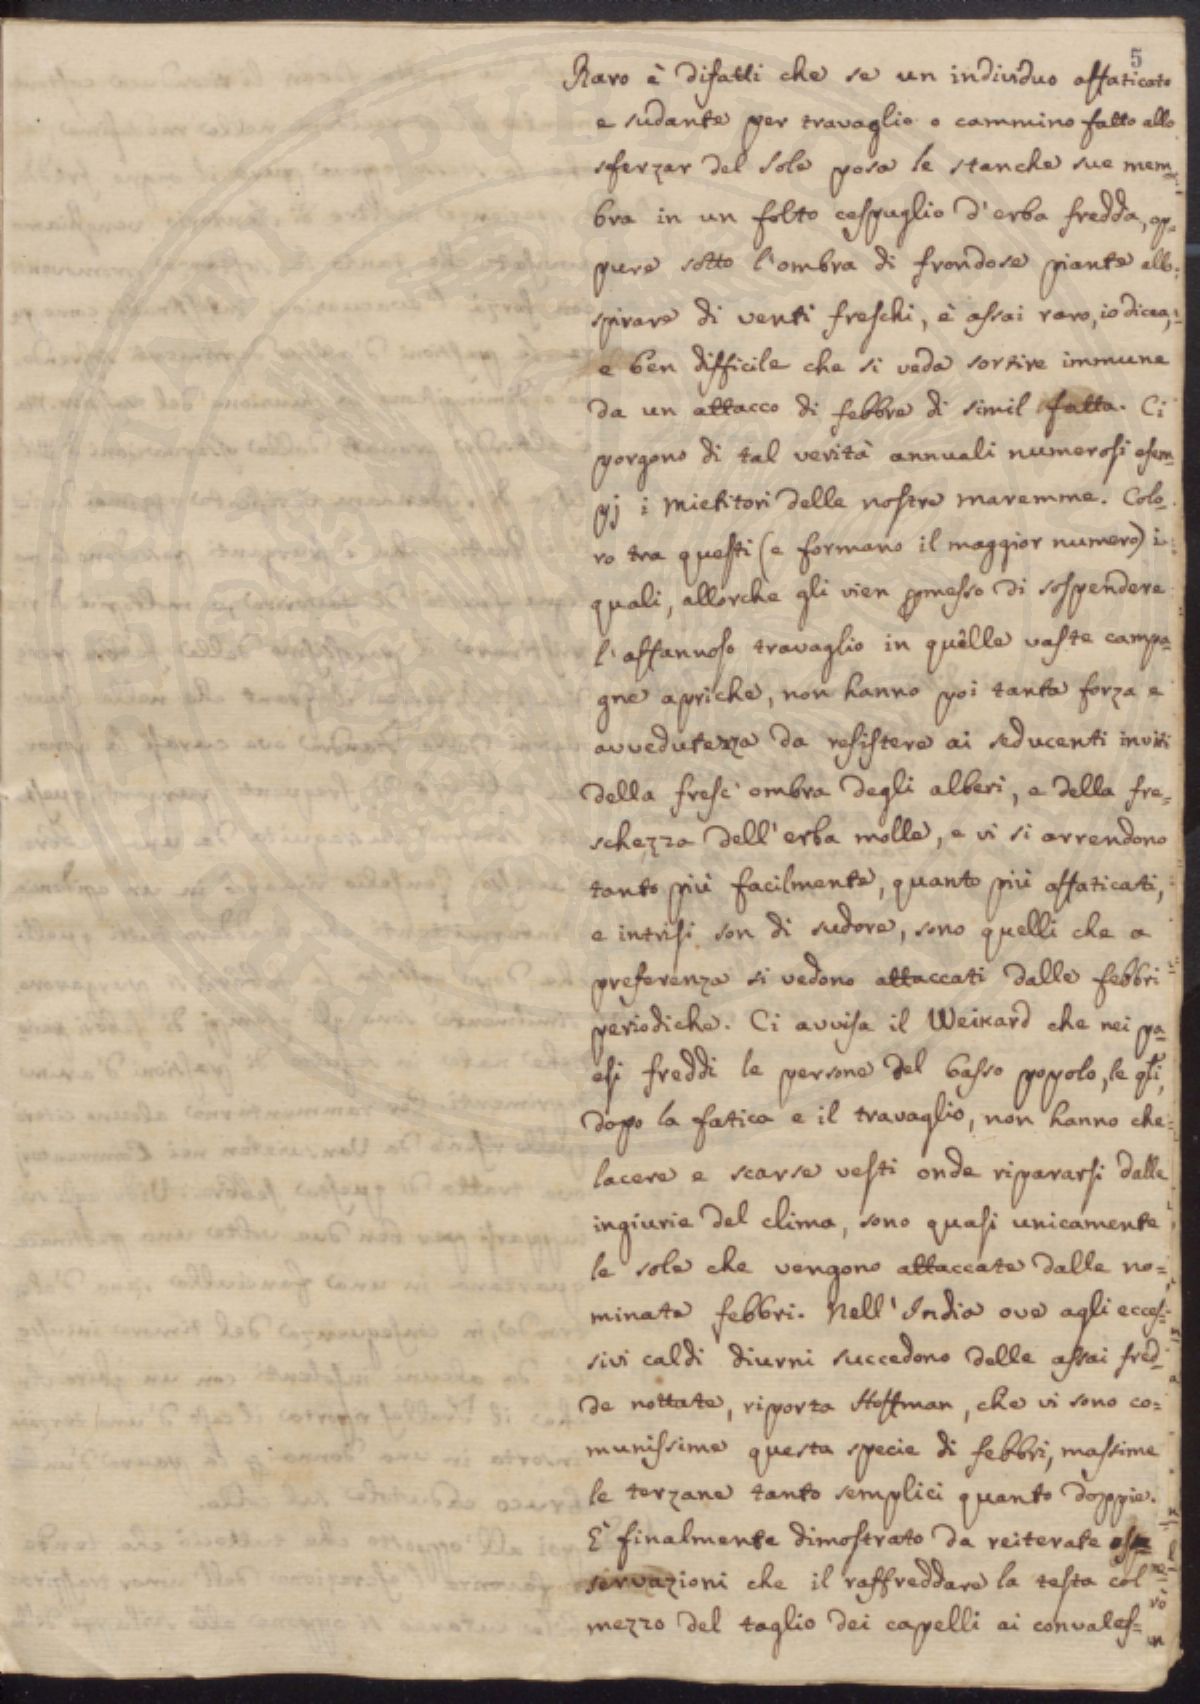 5
Raro è difatti che se un individuo affaticato
e sudante per travaglio o cammino fatto allo
sferzar del sole posa le stanche sue mem=
bra in un folto cespuglio d'erba fredda, op=
pure sotto l'ombra di frondose piante allo
spirare di venti freschi, è assai raro, io dicea,
e ben difficile che si veda sortire immune
da un attacco di febbre di simil fatta. Ci
porgono di tal verità annuali numerosi esem=
pj i Mietitori delle nostre maremme. Colo=
ro tra questi (e formano il maggior numero) i
quali, allorche gli vien pmesso di sospendere
l'affannoso travaglio in quelle vaste campa=
gne apriche, non hanno poi tanta forza e
avvedutezza da resistere ai seducenti inviti
della fresc' ombra degli alberi, e della fre=
schezza dell'erba molle, e vi si arrendono
tanto più facilmente, quanto più affaticati,
e intrisi son di sudore, sono quelli che a
preferenza si vedono attaccati dalle febbri
periodiche. Ci avvisa il Weikard che nei pa=
esi freddi le persone del basso popolo, le qli,
dopo la fatica e il travaglio, non hanno che
lacere e scarse vesti onde ripararsi dalle
ingiurie del clima, sono quasi unicamente
le sole che vengono attaccate dalle no=
minate febbri. Nell'India ove agli ecces=
sivi caldi diurni succedono delle assai fred=
de nottate, riporta Hoffman, che vi sono co=
munissime questa specie di febbri, massime
le terzane tanto semplici quanto doppie.
E' finalmente dimostrato da reiterate os=
servazioni che il raffreddare la testa col
mezzo del taglio dei capelli ai convales=